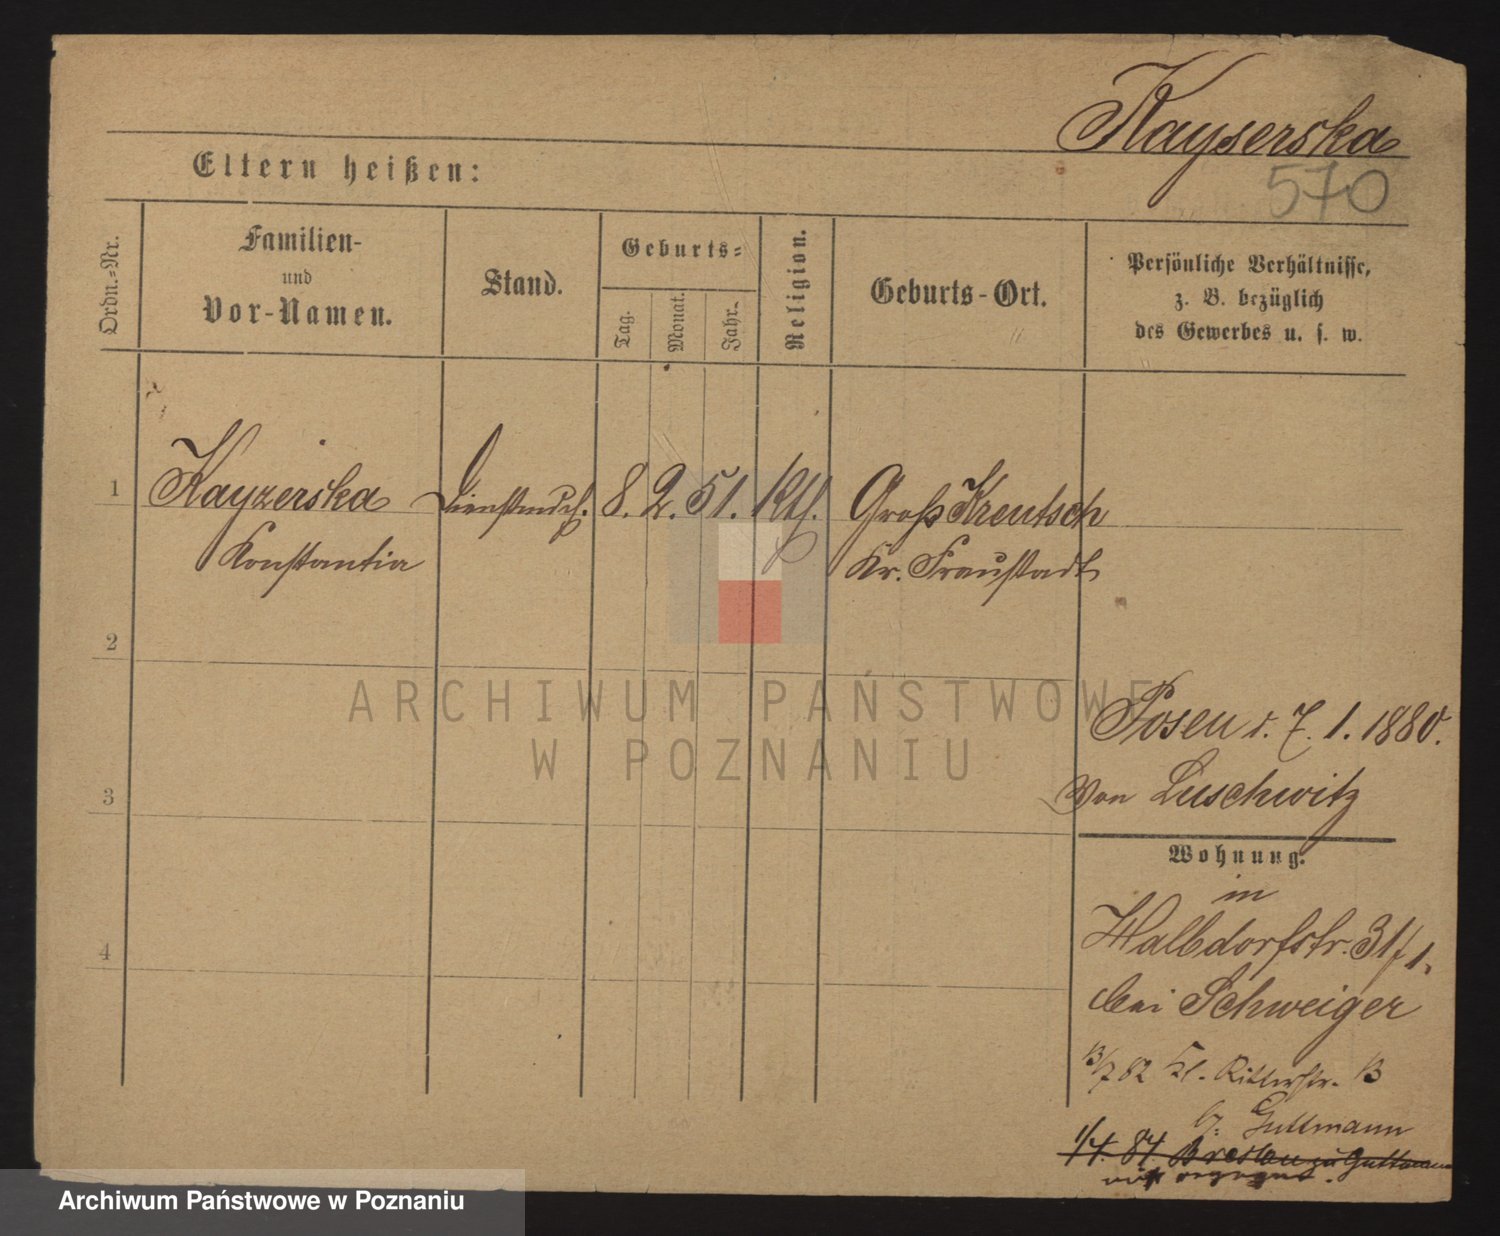 Kayserska
570
Eltern heißen:
Ordn.=Nr.
Familien-
und
Vor-Namen.
Stand.
Geburts=
Tag.
Monat.
Jahr.
Religion.
Geburts-Ort.
Persönliche Verhältnisse,
z. B. bezüglich
des Gewerbes u. s. w.
1 Kayzerska Dienstmdch. 8. 2. 51. Kth. Groß Kreutsch
Konstantia Kr. Fraustadt
2
ARCHIWUM PAŃSTWOWE
W POZNANIU
Posen d. 7. 1. 1880.
3
von Luschwitz
Wohnung:
in
Halbdorfstr. 31/1.
4
bei Schweiger
13/7 82 Kl. Ritterstr. 13
b: Guttmann
1/4. 84. Breslau zu Guttmann
Archiwum Państwowe w Poznaniu